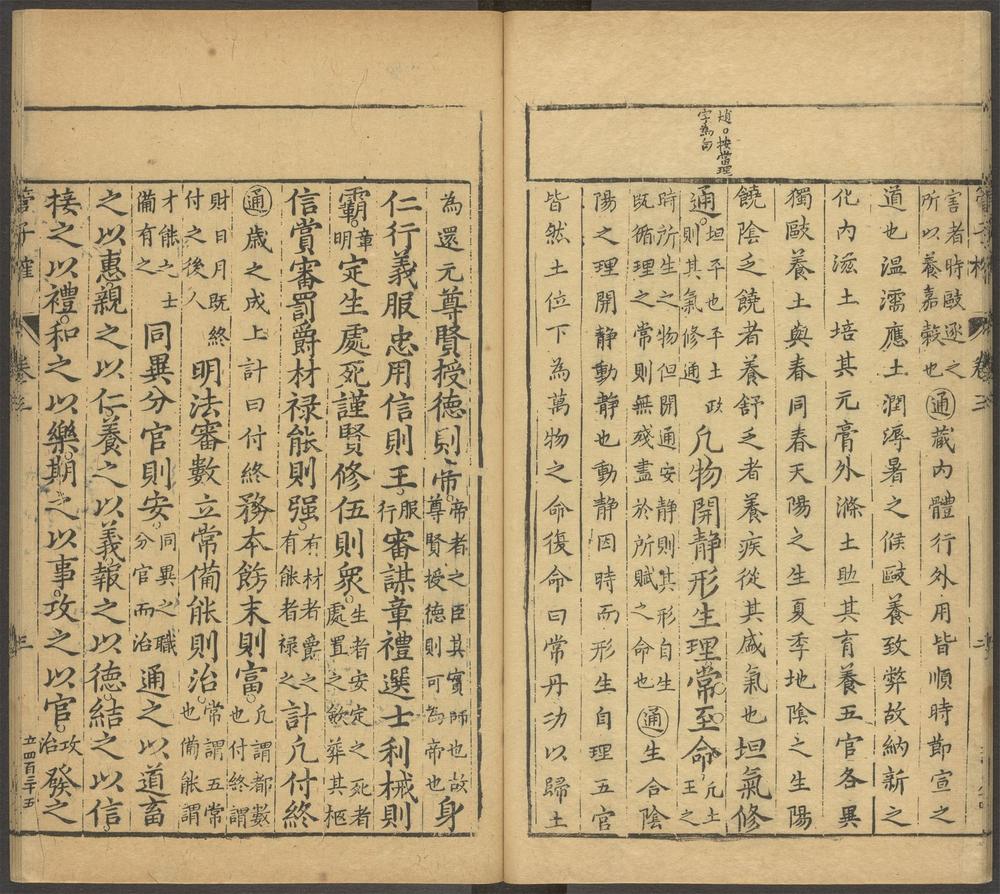 趙〇按當理
字為句
害者時毆逐之
所以養嘉穀也
通藏內體行外用皆順時節宣之
道也溫濡應土潤溽暑之候毆養致弊故納新之
化內滋土培其元膏外滌土助其育養五官各異
獨毆養土與春同春天陽之生夏季地陰之生陽
饒陰乏饒者養舒乏者養疾從其戚氣也坦氣修
通。
坦平也平土政
則其氣修通
凡物開靜形生理。常至命。
凡土
王之
時所生之物但開通安靜則其形自生
既循理之常則無殘盡於所賦之命也
通生合陰
陽之理開靜動靜也動靜因時而形生自理五官
皆然土位下為萬物之命復命曰常丹功以歸土
為還元尊賢授德則帝。
帝者之臣其實師也故
尊賢授德則可為帝也
身
仁行義服忠用信則王。
服
行
審謀章禮選士利械則
霸。
章
明
定生處死謹賢修伍則衆。
生者安定之死者
處置之斂葬其柩
信賞審罰爵材祿能則强。
有材者爵之
有能者祿之
計凡付終
通歲之成上計曰付終務本飭末則富。
凡謂都數
也付終謂
財日月既終
付之後人
明法審數立常備能則治。
常謂五常
也備能謂
才能之士
備有之
同異分官則安。
同異之職
分官而治
通之以道畜
之以惠。親之以仁。養之以義。報之以德。結之以信。
接之以禮。和之以樂。期之以事。攻之以官。
攻
治
發之
管子榷 卷三 三
立四百三十五